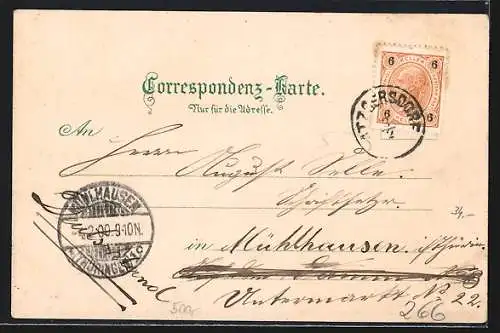 Correspondenz-Karte.
Nur für die Adresse.
6 6
6 6
ATZGERSDORF
An
Herrn August Selle
Schriftsetzer
in Mühlhausen i/Thürin
Untermarkt No 22.
MÜHLHAUSEN
2.00.9-10N.
(THÜRINGEN) 1c
34,-
500r
266